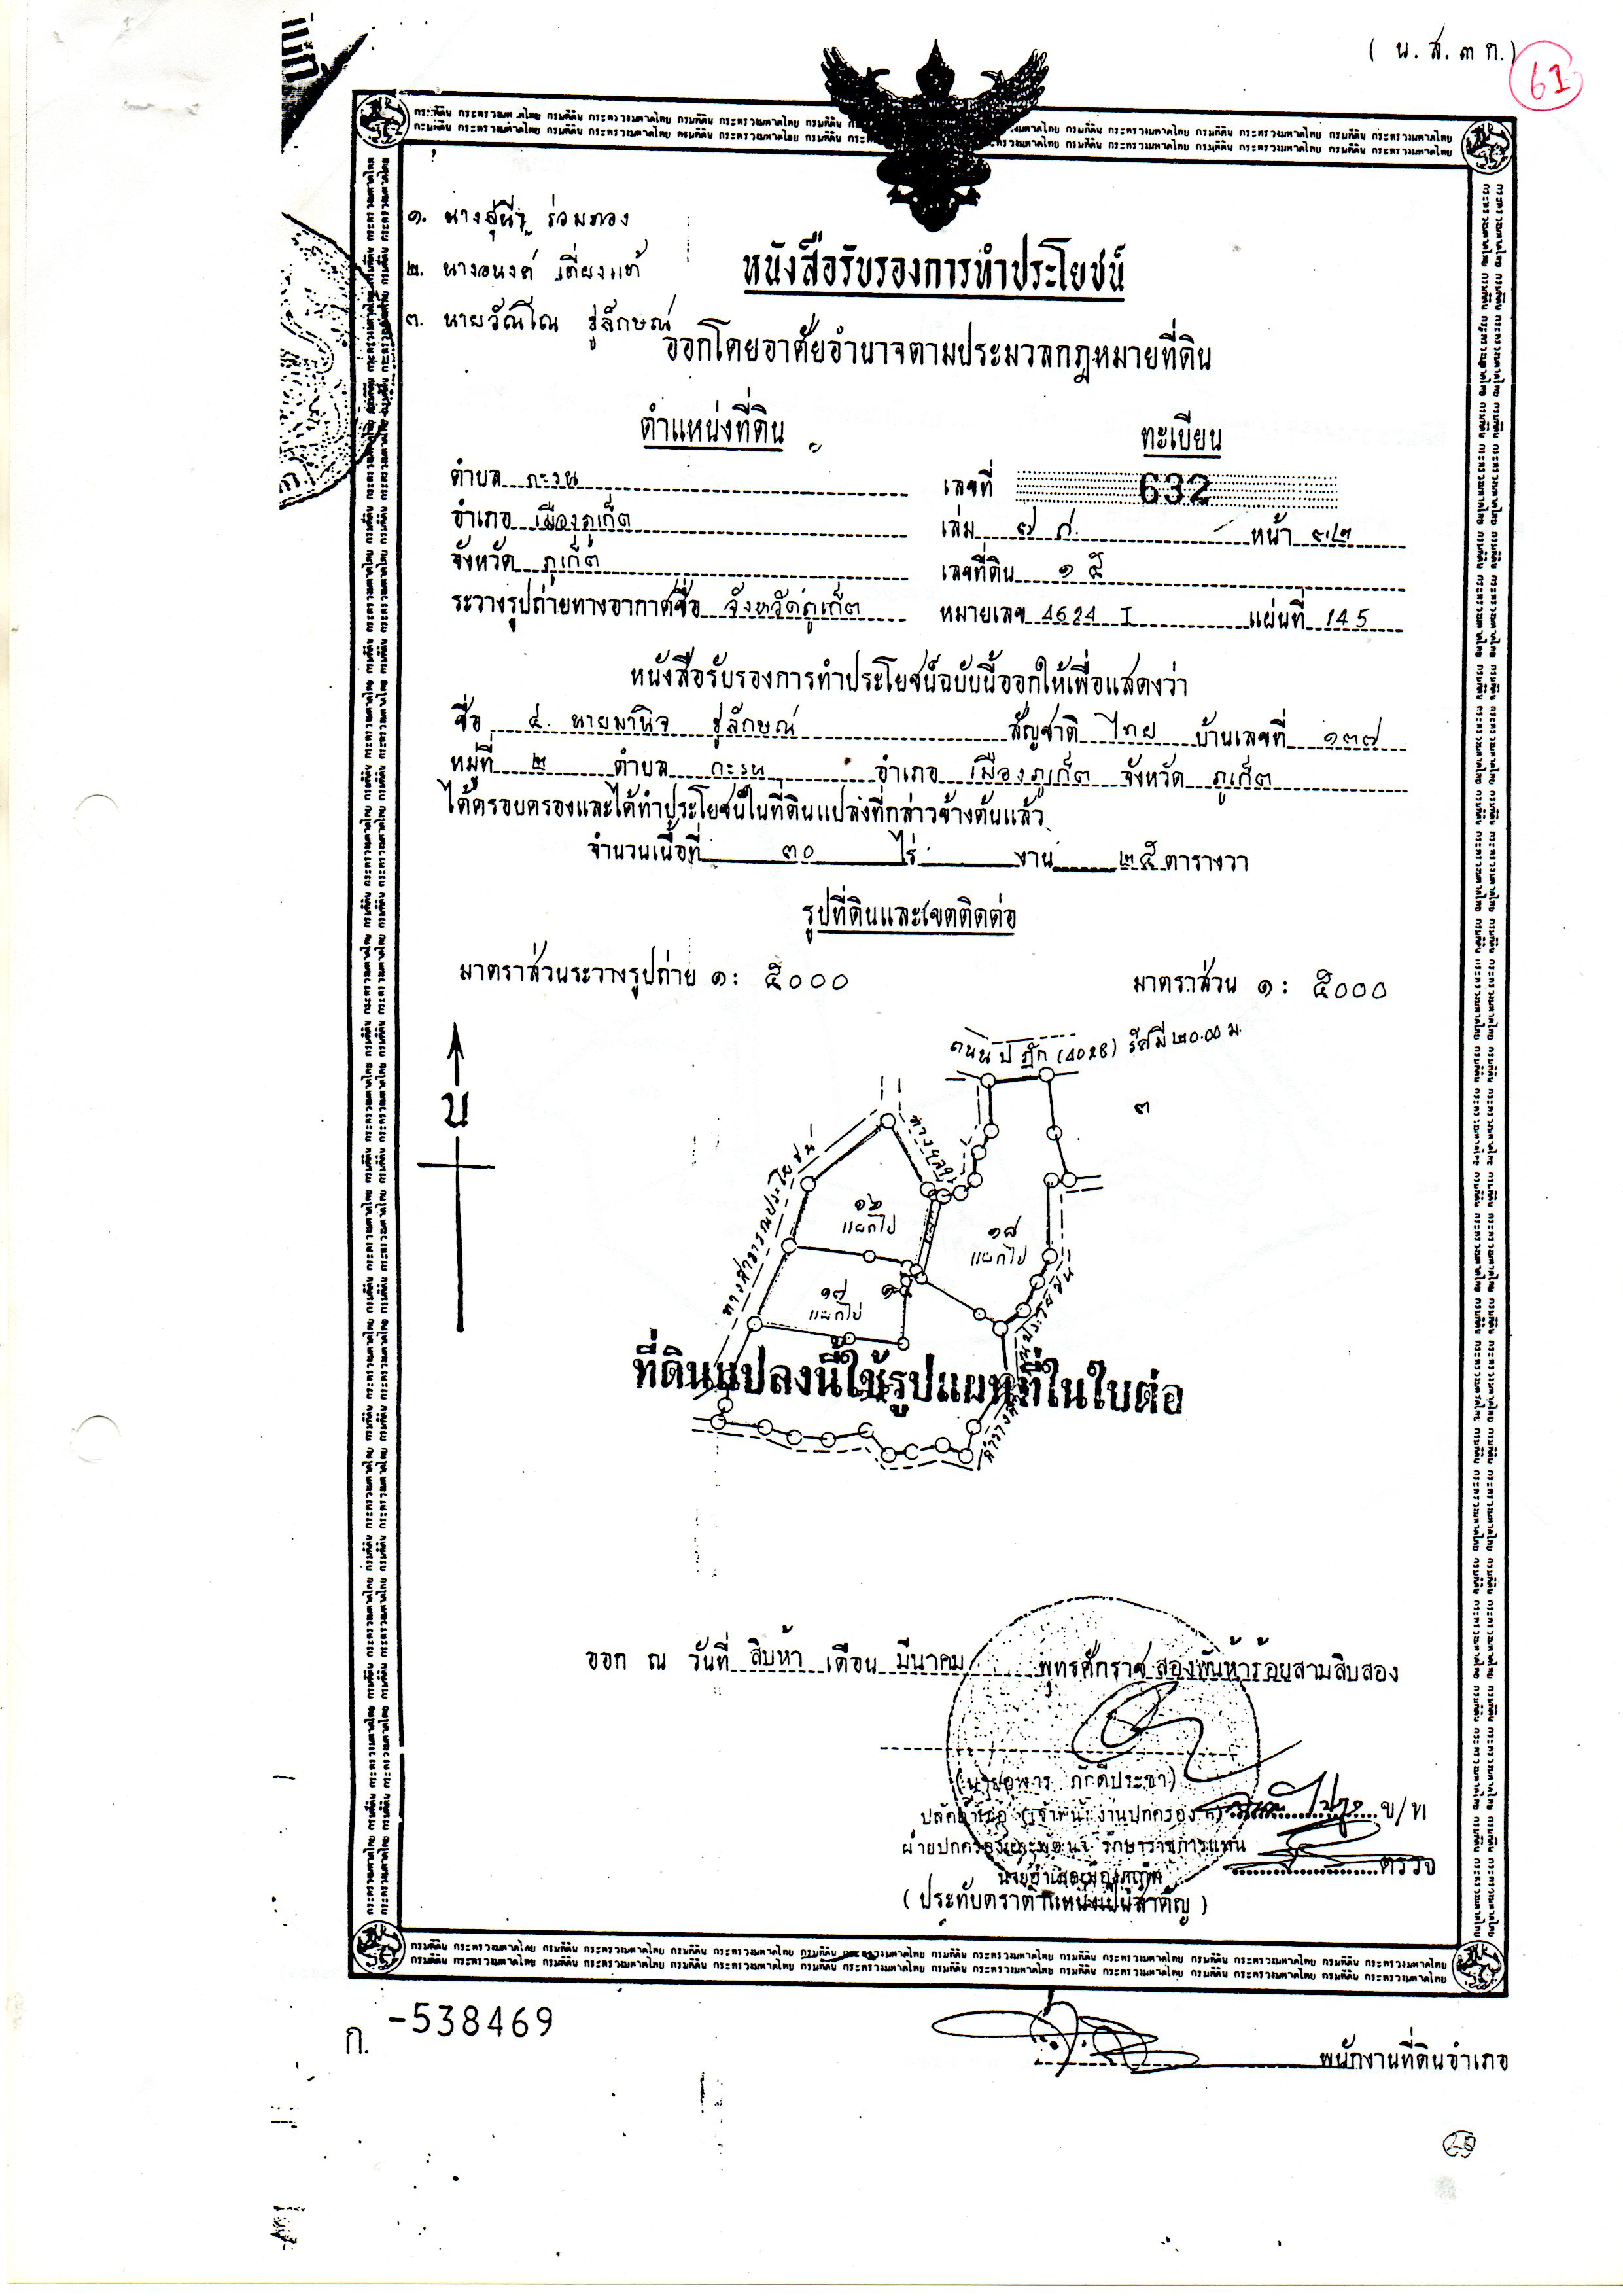 ( น.ส.๓ ก.)
61
๑. นาง ร่วมทอง
๒. นางอนงค์ เที่ยงแท้
๓. นาย ชูลักษณ์
หนังสือรับรองการทำประโยชน์
ออกโดยอาศัยอำนาจตามประมวลกฎหมายที่ดิน
ตำแหน่งที่ดิน ทะเบียน
ตำบล กะรน เลขที่ 632
อำเภอ เมืองภูเก็ต เล่ม ๗ ก. หน้า ๓๒
จังหวัด ภูเก็ต เลขที่ดิน ๑๕
ระวางรูปถ่ายทางอากาศชื่อ จังหวัดภูเก็ต หมายเลข 4624 I แผ่นที่ 145
หนังสือรับรองการทำประโยชน์ฉบับนี้ออกให้เพื่อแสดงว่า
ชื่อ ๔. นายมานิจ ชูลักษณ์ สัญชาติ ไทย บ้านเลขที่ ๑๓๗
หมู่ที่ ๒ ตำบล กะรน อำเภอ เมืองภูเก็ต จังหวัด ภูเก็ต
ได้ครอบครองและได้ทำประโยชน์ในที่ดินแปลงที่กล่าวข้างต้นแล้ว
จำนวนเนื้อที่ ๓๐ ไร่ งาน ๒๕ ตารางวา
รูปที่ดินและเขตติดต่อ
มาตราส่วนระวางรูปถ่าย ๑: ๕๐๐๐ มาตราส่วน ๑: ๕๐๐๐
ถนน ปฏัก (4028) รัศมี ๒๐.๐๐ ม.
น
๓
ทางสาธารณประโยชน์
๑๖
แยกไป
๑๘
แยกไป
๑๗
แยกไป
ที่ดินแปลงนี้ใช้รูปแผนที่ในใบต่อ
ออก ณ วันที่ สิบห้า เดือน มีนาคม พุทธศักราช สองพันห้าร้อยสามสิบสอง
ภักดีประชา)
ข/ท
ฝ่ายปกครองและพัฒนา รักษาราชการแทน
ตรวจ
นายอำเภอเมืองภูเก็ต
( ประทับตราตำแหน่งเป็นสำคัญ )
ก. -538469
พนักงานที่ดินอำเภอ